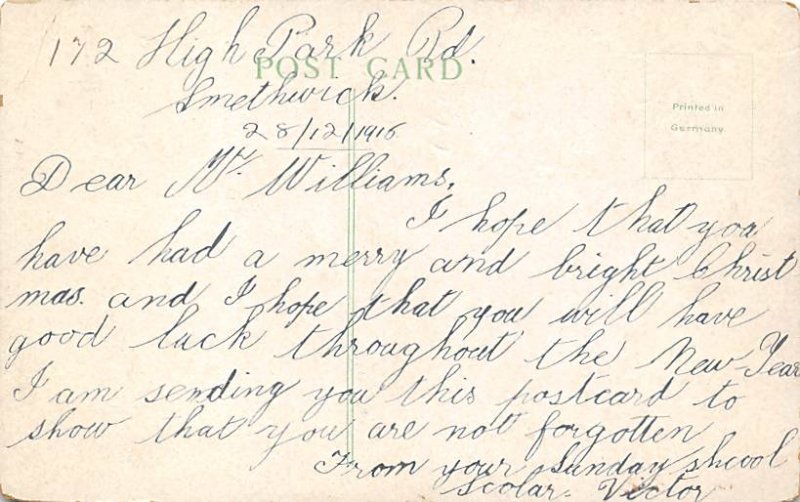 172 High Park Rd.
POST CARD
Smethwick.
28/12/1916
Printed in
Germany.
Dear Mr. Williams,
I hope that you
have had a merry and bright Christ
mas. and I hope that you will have
good luck throughout the New-Year
I am sending you this postcard to
show that you are not forgotten
From your Sunday shcool
Scolar. Victor